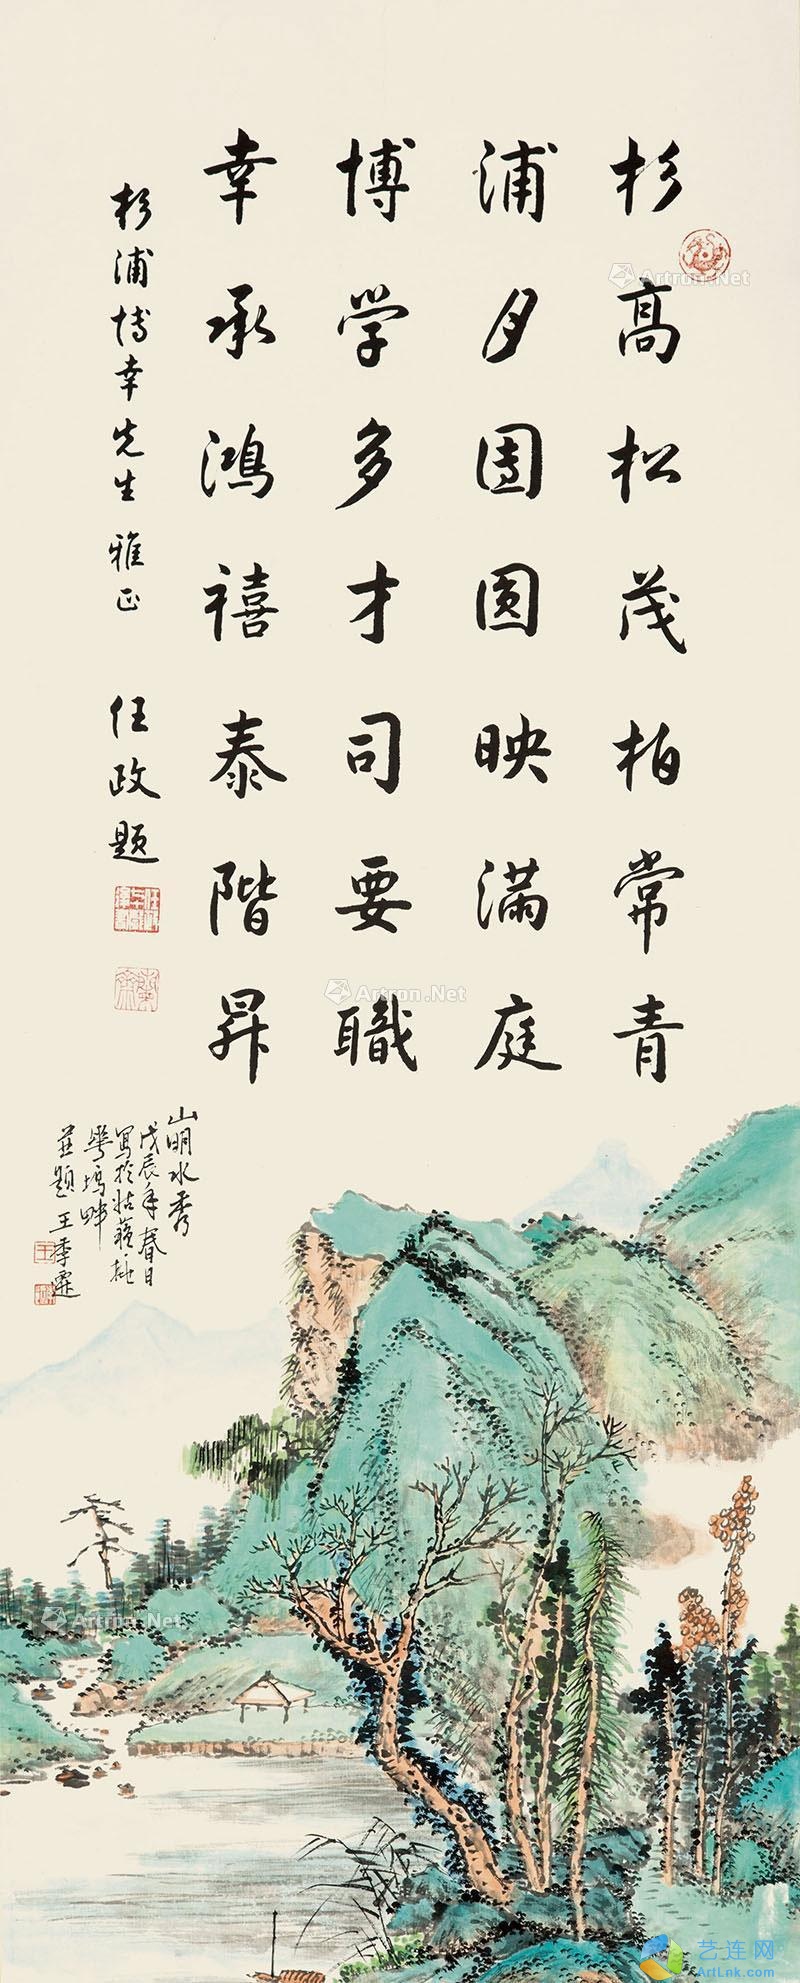 杉高松茂柏常青
浦月團圓映滿庭
博学多才司要職
幸承鴻禧泰階昇
杉浦博幸先生雅正
任政題
山明水秀
戊辰年春日
寫於姑蘇桃
華塢畔
並題王季遷
Artron.Net
Artron.Net
Artron.Net
艺连网
ArtLnk.com